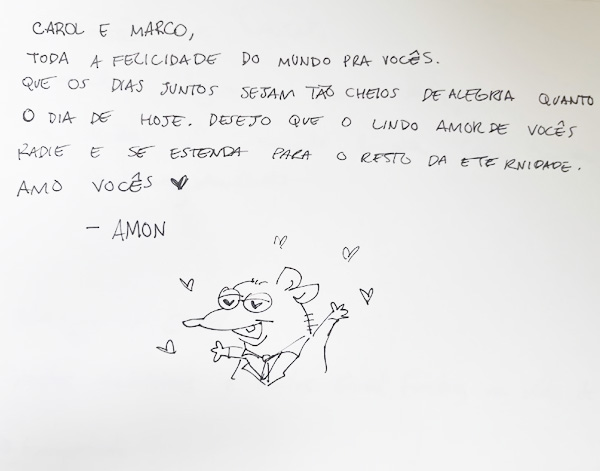 CAROL E MARCO,
TODA A FELICIDADE DO MUNDO PRA VOCÊS.
QUE OS DIAS JUNTOS SEJAM TÃO CHEIOS DE ALEGRIA QUANTO
O DIA DE HOJE. DESEJO QUE O LINDO AMOR DE VOCÊS
RADIE E SE ESTENDA PARA O RESTO DA ETERNIDADE.
AMO VOCÊS ♥
– AMON